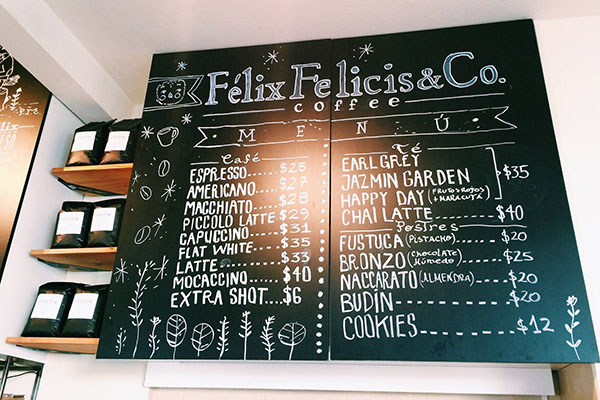 Félix Felicis & Co.
coffee
MENÚ
Café
ESPRESSO.....$25
AMERICANO.....$27
MACCHIATO.....$28
PICCOLO LATTE..$29
CAPUCCINO.....$31
FLAT WHITE.....$35
LATTE.........$33
MOCACCINO.....$40
EXTRA SHOT....$6
Té
EARL GREY
JAZMIN GARDEN
HAPPY DAY (FRUTOS ROJOS + MARACUYÁ) $35
CHAI LATTE-----$40
Postres
FUSTUCA (PISTACHO)...$20
BRONZO (Chocolate Húmedo)...$25
NACCARATO (ALMENDRA)...$20
BUDÍN.........$20
COOKIES---------$12